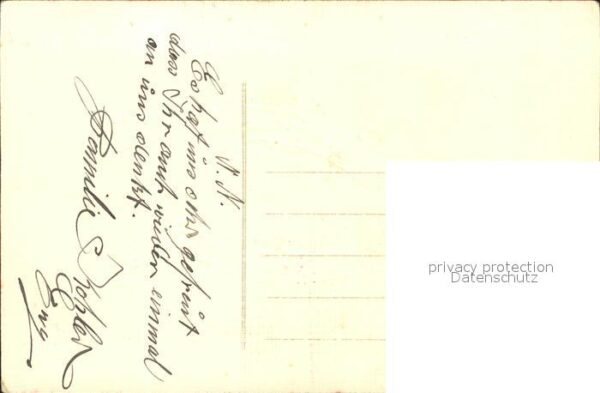 N. N.
Es hat uns sehr gefreut
dass Ihr auch wieder einmal
an uns denkt.
Familie
privacy protection
Datenschutz